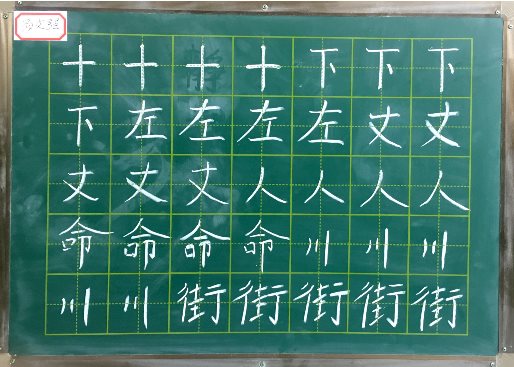 十十十十下下下
下左左左左丈丈
丈丈丈人人人人
命命命命川川川
川川街街街街街